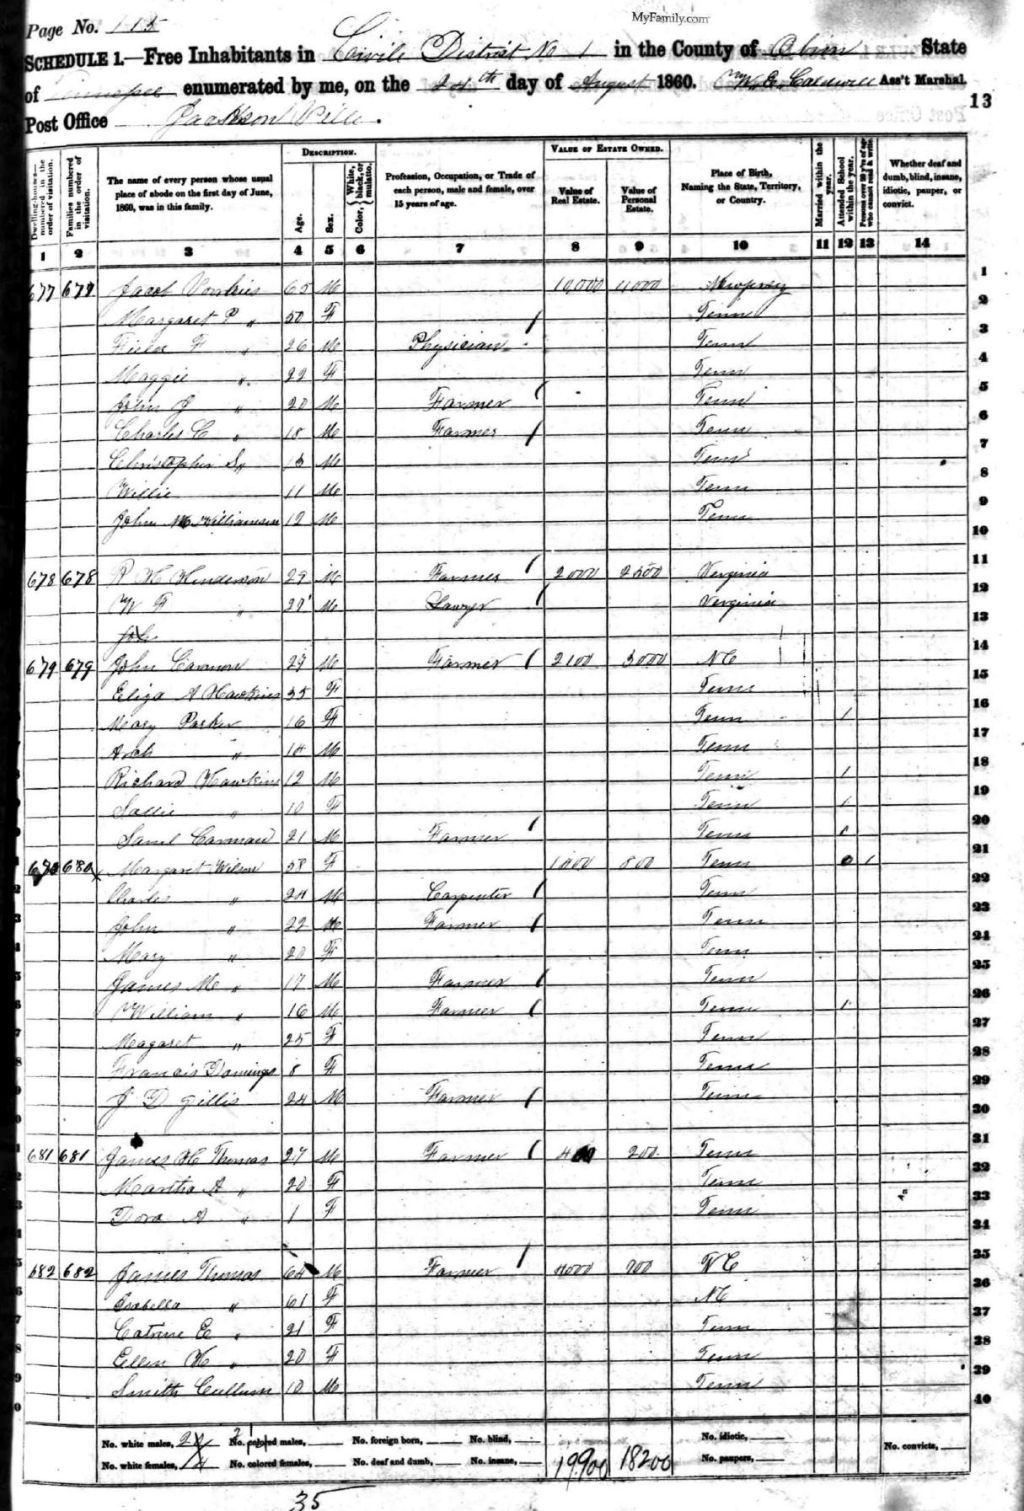 MyFamily.com
Page No. 115
SCHEDULE 1.—Free Inhabitants in Civile District No 1 in the County of Obion State
of Tennessee enumerated by me, on the day of August 1860. Wm E. Caldwell Ass't Marshal.
13
Post Office Jacksonville.
Dwelling-houses—numbered in the order of visitation. Families numbered in the order of visitation. The name of every person whose usual place of abode on the first day of June, 1860, was in this family. DESCRIPTION. Age. Sex. Color, White, black, or mulatto. Profession, Occupation, or Trade of each person, male and female, over 15 years of age. VALUE OF ESTATE OWNED. Value of Real Estate. Value of Personal Estate. Place of Birth, Naming the State, Territory, or Country. Married within the year. Attended School within the year. Persons over 20 y'rs of age who cannot read & write. Whether deaf and dumb, blind, insane, idiotic, pauper, or convict.
1 2 3 4 5 6 7 8 9 10 11 12 13 14
677 677 Jacob Vorhies 65 M 10,000 11000 New Jersey 1
Margaret P " 50 F Tenn 2
F " 26 M Physician Tenn 3
Maggie " 22 F Tenn 4
John J " 20 M Farmer Tenn 5
Charles C " 18 M Farmer Tenn 6
Christopher S " 13 M Tenn 7
Willie 11 M Tenn 8
John McWilliamson 12 M Tenn 9
10
678 678 R H Henderson 29 M Farmer 2000 2500 Verginia 11
W F " 29 M Lawyer Verginia 12
13
679 679 John Carman 29 M Farmer 2100 3000 NC 14
Eliza A Hawkins 35 F Tenn 15
Mary Parker 16 F Tenn 1 16
Arch " 14 M Tenn 17
Richard Hawkins 12 M Tenn 1 18
Sallie " 10 F Tenn 1 19
Saml Carman 21 M Farmer Tenn 1 20
680 680 Margaret Wilson 58 F 1400 800 Tenn 1 21
Charles " 24 M Carpenter Tenn 22
John " 22 M Farmer Tenn 23
Mary " 20 F Tenn 24
James M " 17 M Farmer Tenn 25
William " 16 M Farmer Tenn 1 26
Magaret " 25 F Tenn 27
Francis Domings 8 F Tenn 28
J D Gillis 24 M Farmer Tenn 29
30
681 681 James H Thomas 27 M Farmer 400 200 Tenn 31
Martha A " 20 F Tenn 32
Dora A " 1 F Tenn 33
34
682 682 James Thomas 64 M Farmer 4000 700 NC 35
Isabella " 61 F NC 36
Catrine E " 21 F Tenn 37
Ellen H " 20 F Tenn 38
Smith Cullum 10 M Tenn 39
40
No. white males, No. colored males, No. foreign born, No. blind, No. idiotic,
No. white females, 14 No. colored females, No. deaf and dumb, No. insane, 19900 18200 No. paupers, No. convicts,
35